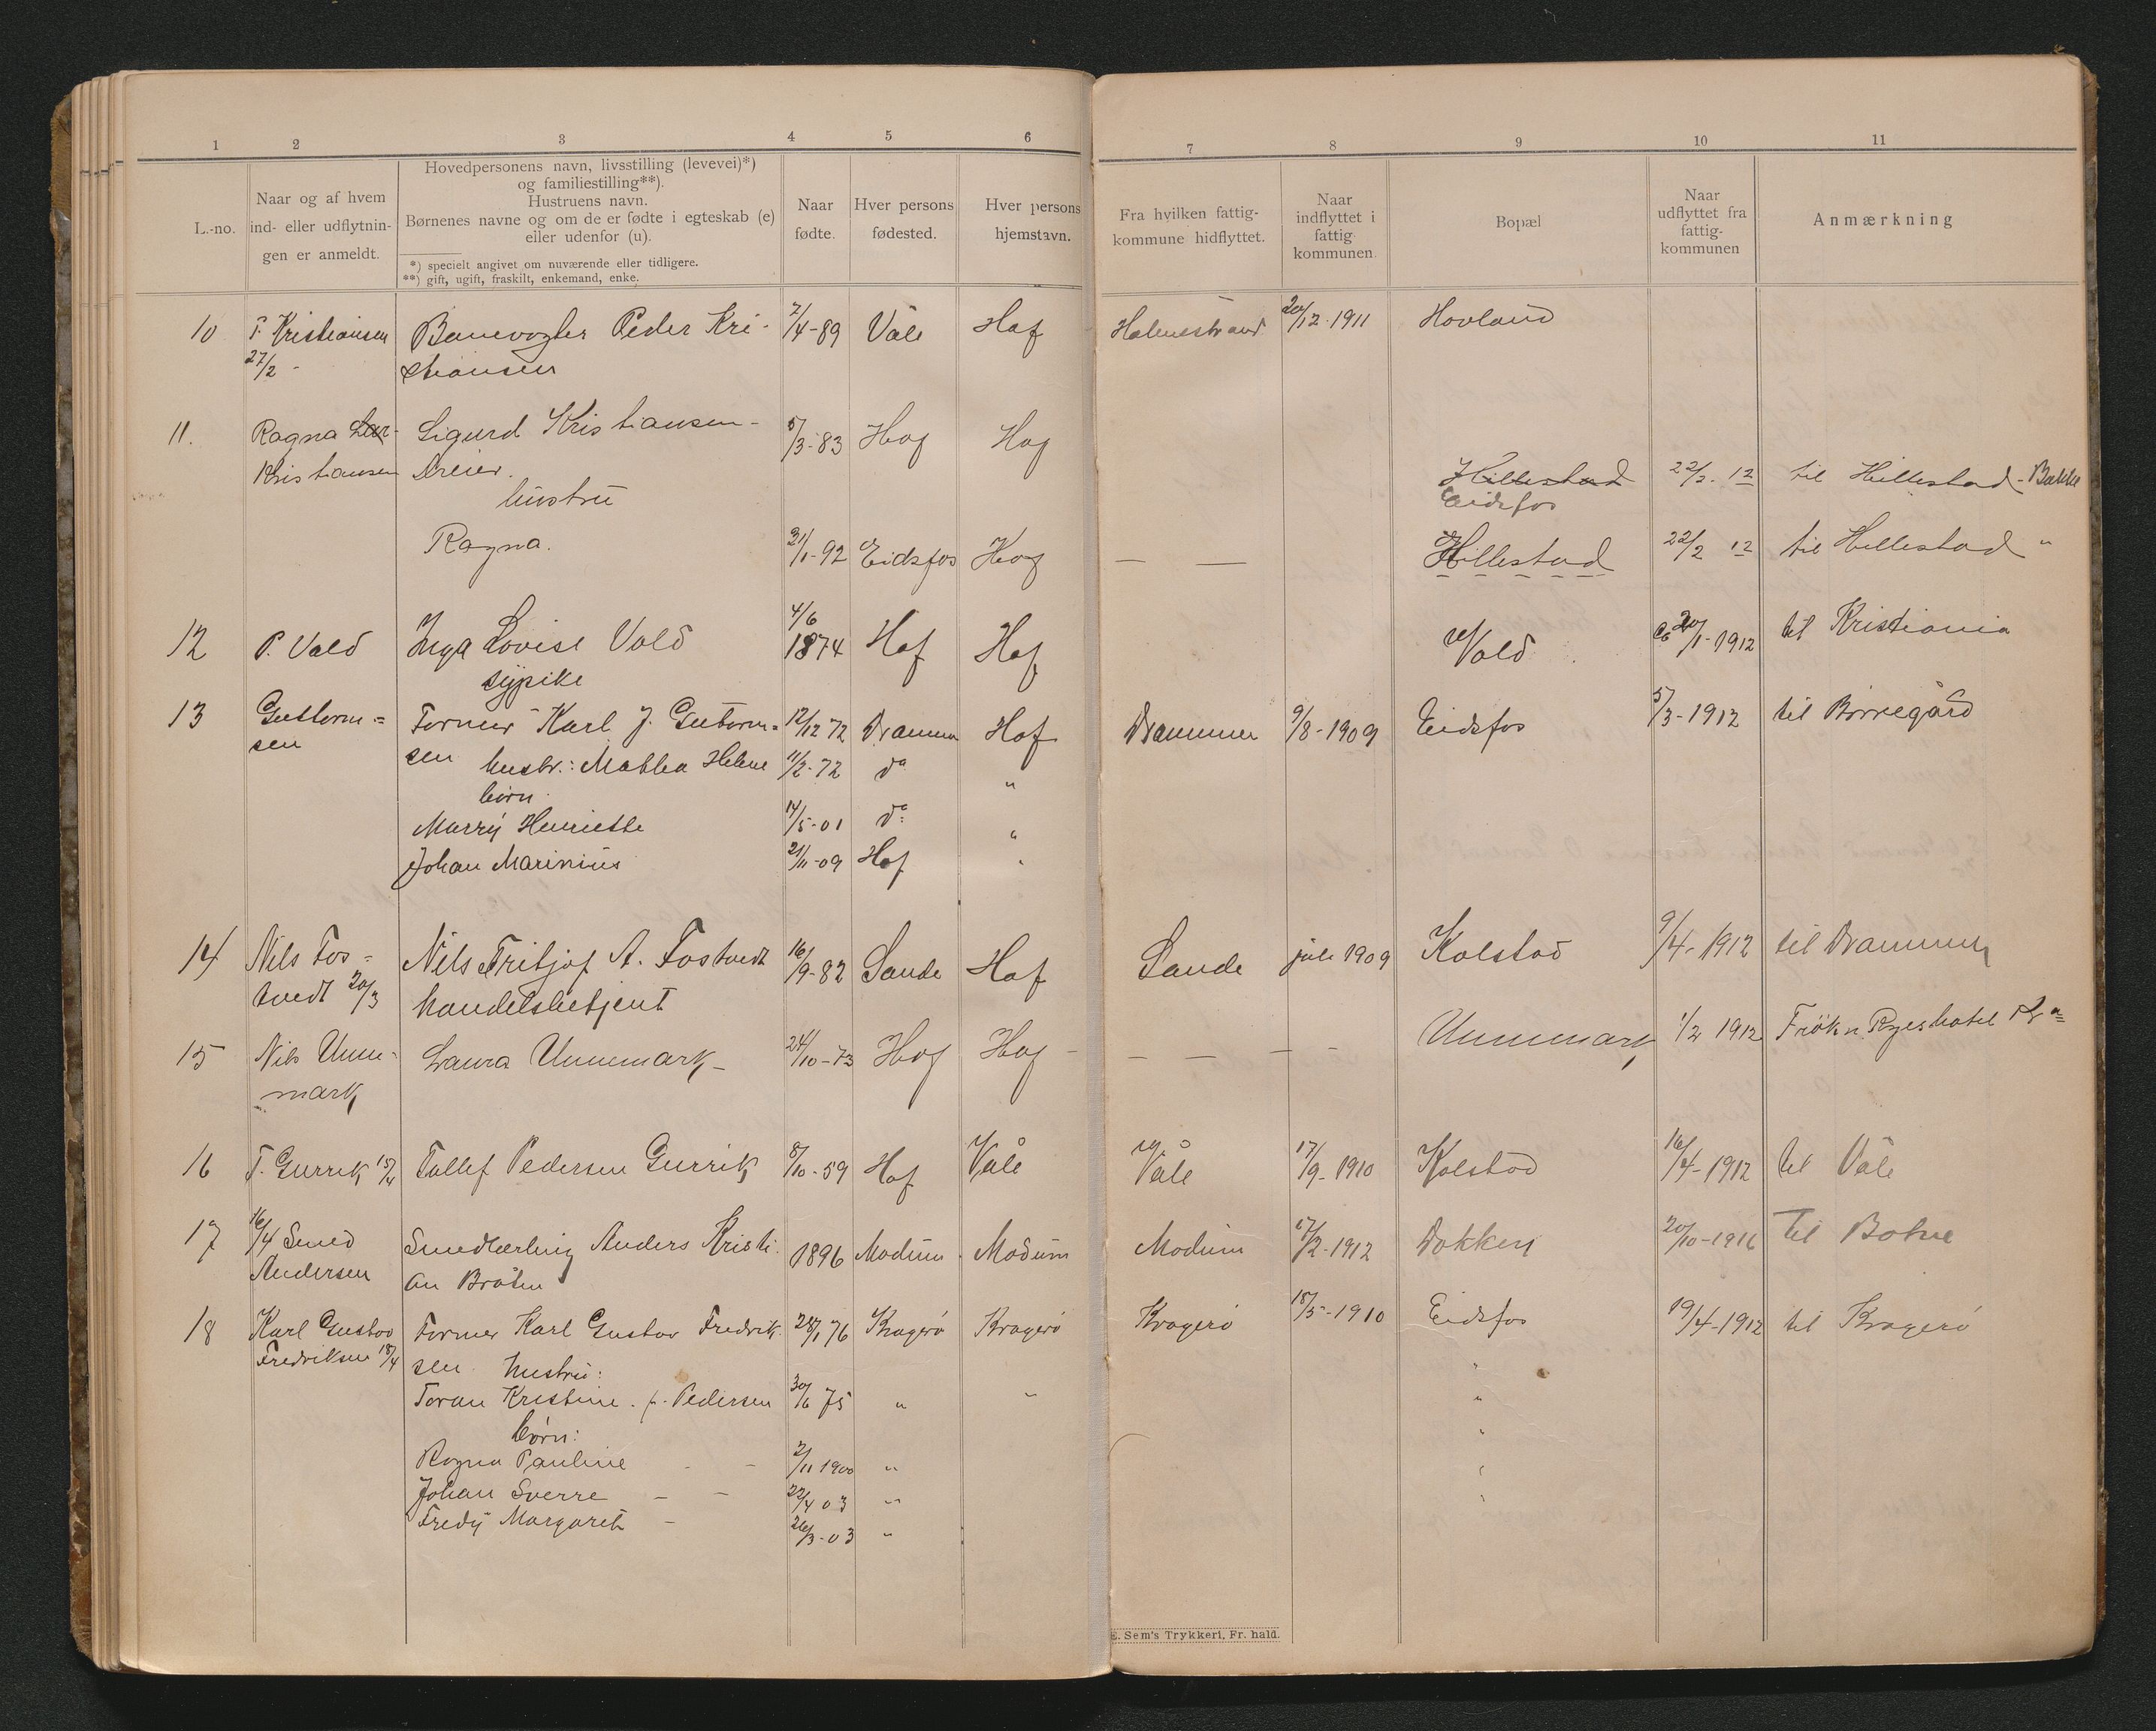 1 2 3 4 5 6 7 8 9 10 11
L.-no.
Naar og af hvem
ind- eller udflytnin-
gen er anmeldt.
Hovedpersonens navn, livsstilling (levevei)*)
og familiestilling**).
Hustruens navn.
Børnenes navne og om de er fødte i egteskab (e)
eller udenfor (u).
*) specielt angivet om nuværende eller tidligere.
**) gift, ugift, fraskilt, enkemand, enke.
Naar
fødte.
Hver persons
fødested.
Hver persons
hjemstavn.
Fra hvilken fattig-
kommune hidflyttet.
Naar
indflyttet i
fattig-
kommunen.
Bopæl
Naar
udflyttet fra
fattig-
kommunen
Anmærkning
10 P. Kristiansen Banevogter Peder Kri- 2/4-89 Våle Hof Holmestrand 20/12-1911 Hovland
27/2 - stiansen
11. Ragna Lar- Sigurd Kristiansen - 5/3-83 Hof Hof
Kristiansen Dreier. Hillestad 22/2-12 til Hillestad - Bakke
hustru Eidsfos
Ragna. 31/1-92 Eidsfos Hof — — Hillestad 22/2 12 til Hillestad "
12 P. Vold Inga Lovise Vold 4/6 1874 Hof Hof Vold 20/1-1912 til Kristiania
sypike
13 Guttorm= Former Karl J. Gutorm= 12/12 72 Drammen Hof Drammen 9/8-1909 Eidsfos 5/3-1912 til Borregård
sen sen hustr.: Mathea Helene 11/2-72 do "
børn.
Marry Henriette 14/5-01 do "
Johan Marinius 21/11-09 Hof "
14 Nils Fos= Nils Fritjof A. Fostvedt 16/9-82 Sande Hof Sande juli 1909 Kolstad 9/4-1912 til Drammen
tvedt 20/3 handelsbetjent
15 Nils Unne- Laura Unnemark - 24/10-73 Hof Hof - — — — — Unnemark 1/2 1912 Frøkn Ryes hotel Kra
mark
16 T. Gurrik 15/4 Tollef Pedersen Gurrik 8/10-59 Hof Våle Våle 17/9-1910 Kolstad 16/4-1912 til Våle
17 16/4 Smed Smedlærling Anders Kristi- 1896 Modum Modum Modum 17/2-1912 Dokken 20/10-1916 Til Botne
Andersen an Bråten
18 Karl Gustav Former Karl Gustav Fredrik- 28/1 76 Kragerø Kragerø Kragerø 18/5-1910 Eidsfos 19/4-1912 til Kragerø
Fredriksen 18/4 sen hustru: "
Toran Kristine f. Pedersen 30/6 75 " " "
børn: "
Ragna Pauline - - 2/11 1900 " "
Johan Sverre - - 22/4 03 " "
Fredy Margareth - 26/3-03 "
E. Sem's Trykkeri, Fr. hald.